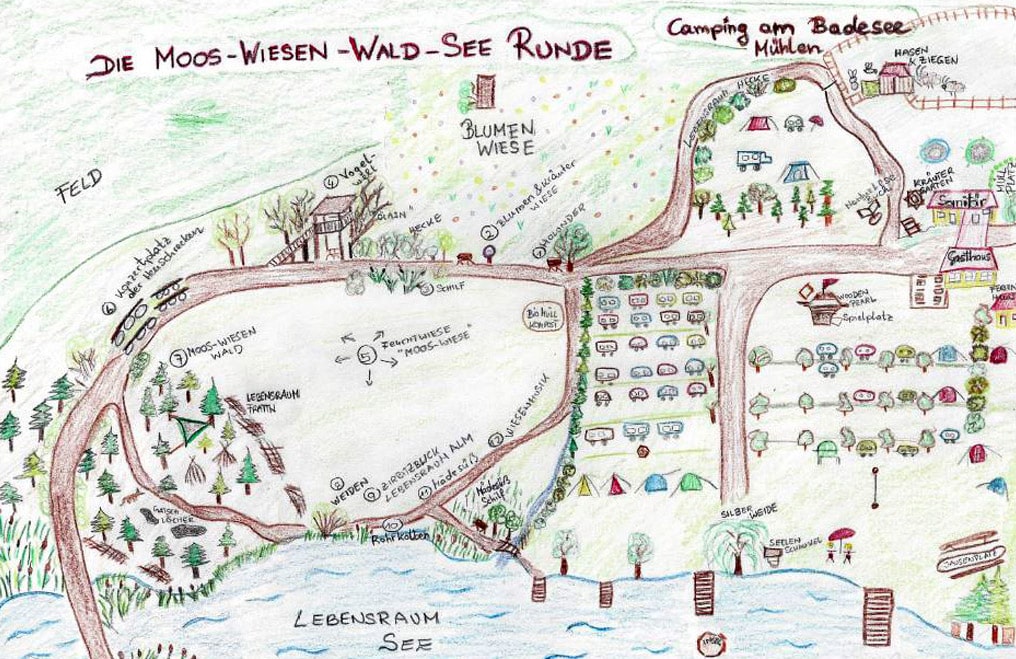 DIE MOOS-WIESEN-WALD-SEE RUNDE
Camping am Badesee
Mühlen
HASEN
& ZIEGEN
LEBENSRAUM HECKE
BLUMEN
WIESE
FELD
④ Vogel-
WELT
HECKE
② Blumen & Kräuter
WIESE
① HOLANDER
KRÄUTER
GARTEN
MÜLL
PLATZ
Sanitär
Gasthaus
⑥ Konzertplatz
der Heuschrecken
③ SCHILF
BIO MÜLL
KOMPOST
WOODEN
PEARL
Spielplatz
⑤ FEUCHTWIESE
"MOOS-WIESE"
⑦ MOOS-WIESEN
WALD
LEBENSRAUM
TRATTN
⑫ WIESENMUSIK
⑧ WEIDEN
⑨ ZIRBITZBLICK
LEBENSRAUM ALM
⑪ Mädesüß
Mädesüß
Schilf
⑩
Rohrkolben
LÖCHER
SILBER
WEIDE
SEELEN
SCHAUKEL
JAUSENPLATZ
LEBENSRAUM
SEE
INSEL